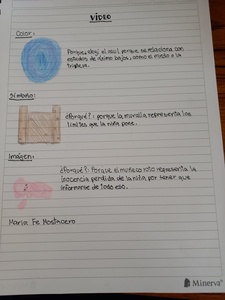 VIDEO
Color:
Porque, elegí el azul porque se relaciona con
estados de ánimo bajos, como el miedo o la
tristeza.
Símbolo:
¿Porqué?: porque la muralla representa los
límites que la niña pone.
Imágen:
¿Porqué?: Porque el muñeco roto representa la
inocencia perdida de la niña, por tener que
informarse de todo eso.
María Fe Montenero
Minerva